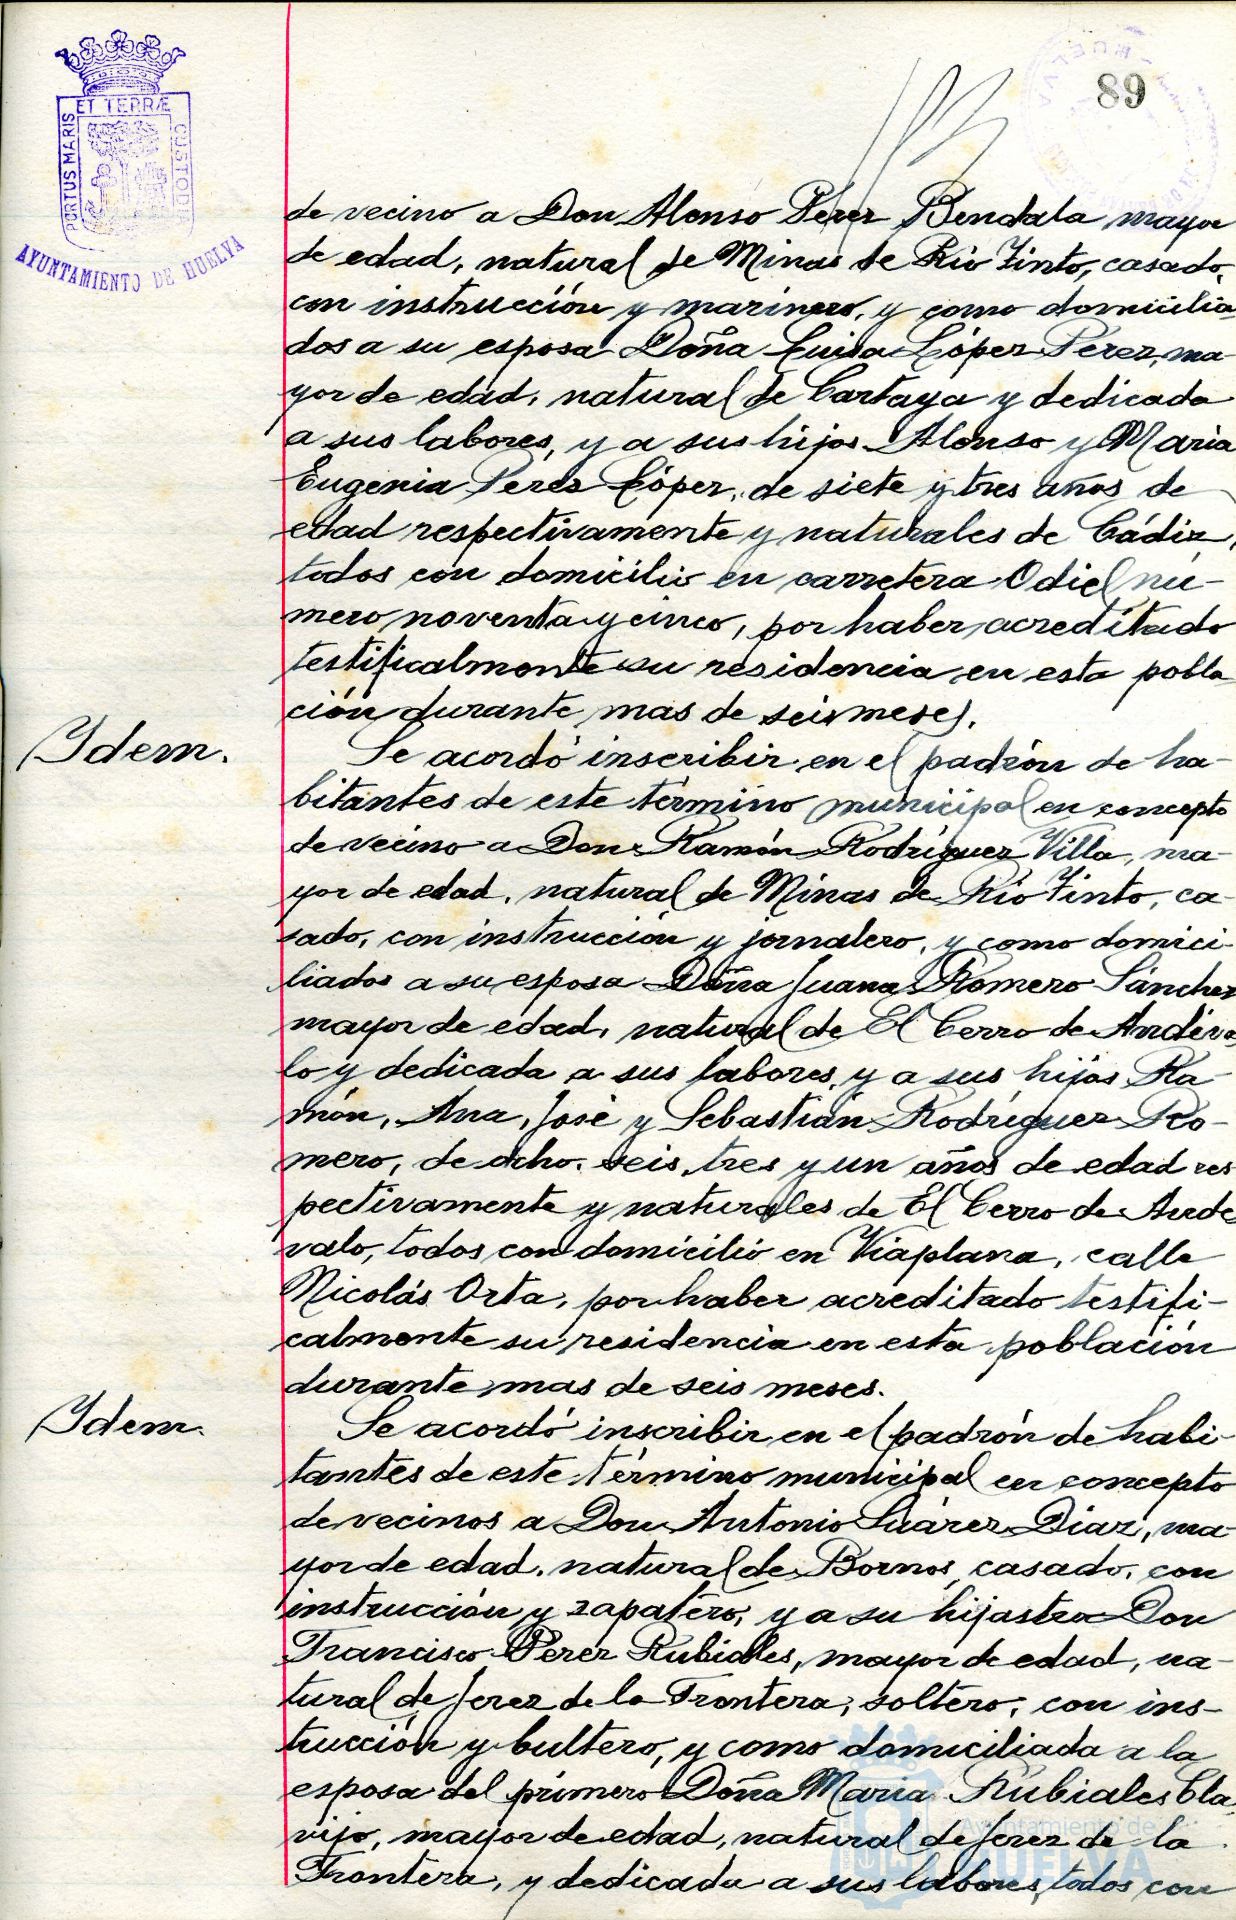 ET TERRÆ
PORTUS MARIS
CUSTODIA
AYUNTAMIENTO DE HUELVA
HUELVA
89
de vecino a Don Alonso Pérez Bendala mayor
de edad, natural de Minas de Rio Tinto, casado,
con instrucción y marinero, y como domicilia
dos a su esposa Doña Luisa López Pérez, ma-
yor de edad, natural de Cartaya y dedicada
a sus labores, y a sus hijos Alonso y Maria
Eugenia Peres López, de siete y tres años de
edad respectivamente y naturales de Cádiz,
todos con domicilio en carretera Odiel nú-
mero noventa y cinco, por haber acreditado
testificalmente su residencia en esta pobla
ción durante mas de seis meses.
Ydem.
Se acordó inscribir en el padrón de ha-
bitantes de este término municipal en concepto
de vecino a Don Ramón Rodríguez Villa, ma-
yor de edad, natural de Minas de Rio Tinto, ca-
sado, con instrucción y jornalero, y como domici-
liados a su esposa Doña Juana Romero Sánchez
mayor de edad, natural de El Cerro de Andéva
lo y dedicada a sus labores, y a sus hijos Ra-
món, Ana, José y Sebastián Rodríguez Ro-
mero, de ocho, seis, tres y un años de edad res
pectivamente y naturales de El Cerro de Ande
valo, todos con domicilio en Viaplana, calle
Nicolás Orta, por haber acreditado testifi-
calmente su residencia en esta población
durante mas de seis meses.
Ydem.
Se acordó inscribir en el padrón de habi-
tantes de este término municipal en concepto
de vecinos a Don Antonio Suárez Diaz, ma-
yor de edad, natural de Bornos, casado, con
instrucción y zapatero, y a su hijastro Don
Francisco Perez Rubiales, mayor de edad, na-
tural de Jerez de la Frontera, soltero, con ins-
trucción y bultero, y como domiciliada a la
esposa del primero Doña Maria Rubiales Cla
vijo, mayor de edad, natural de Jerez de la
Frontera, y dedicada a sus labores, todos con
Ayuntamiento de
HUELVA